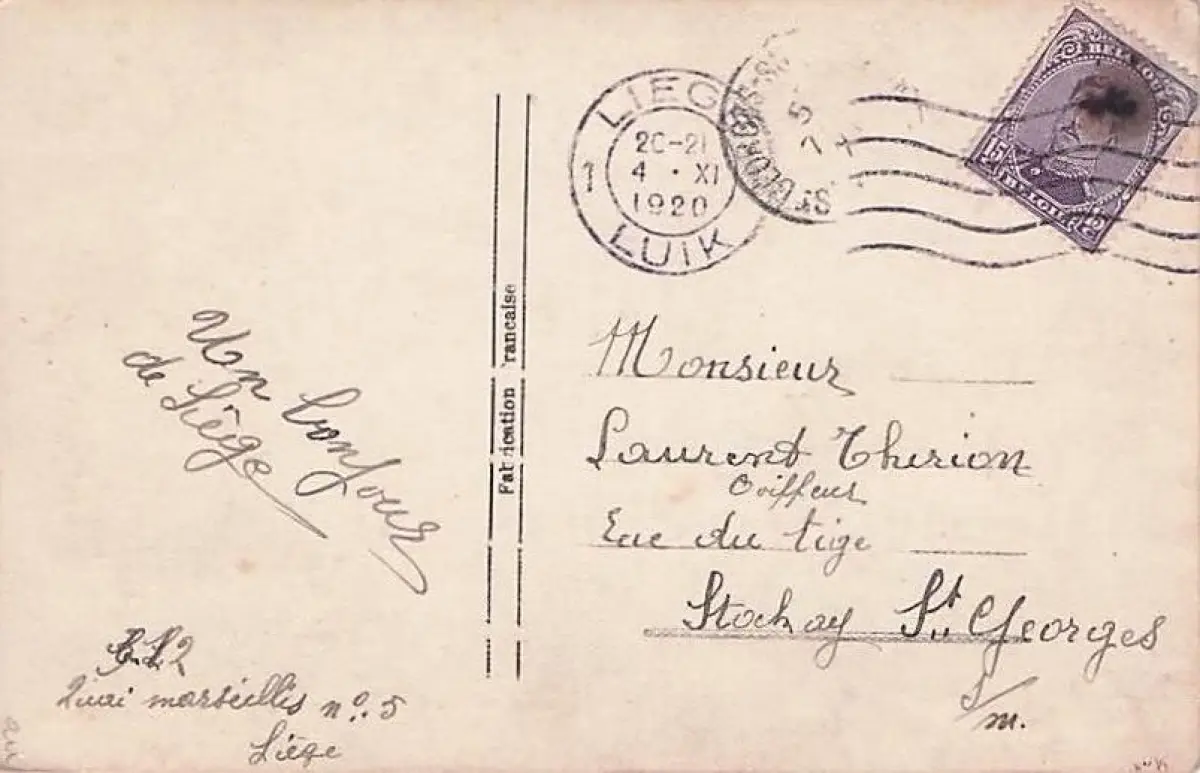 Un bonjour
de Liège
Quai marseillis nº. 5
Liège
Fabrication Francaise
LIEG
20-21
4 • XI
1920
1
LUIK
ST GEORGES-S
5
BELGIQUE
15
BELGIË
Monsieur
Laurent Therion
Coiffeur
Rue du tige
Stockay St Georges
s/m.